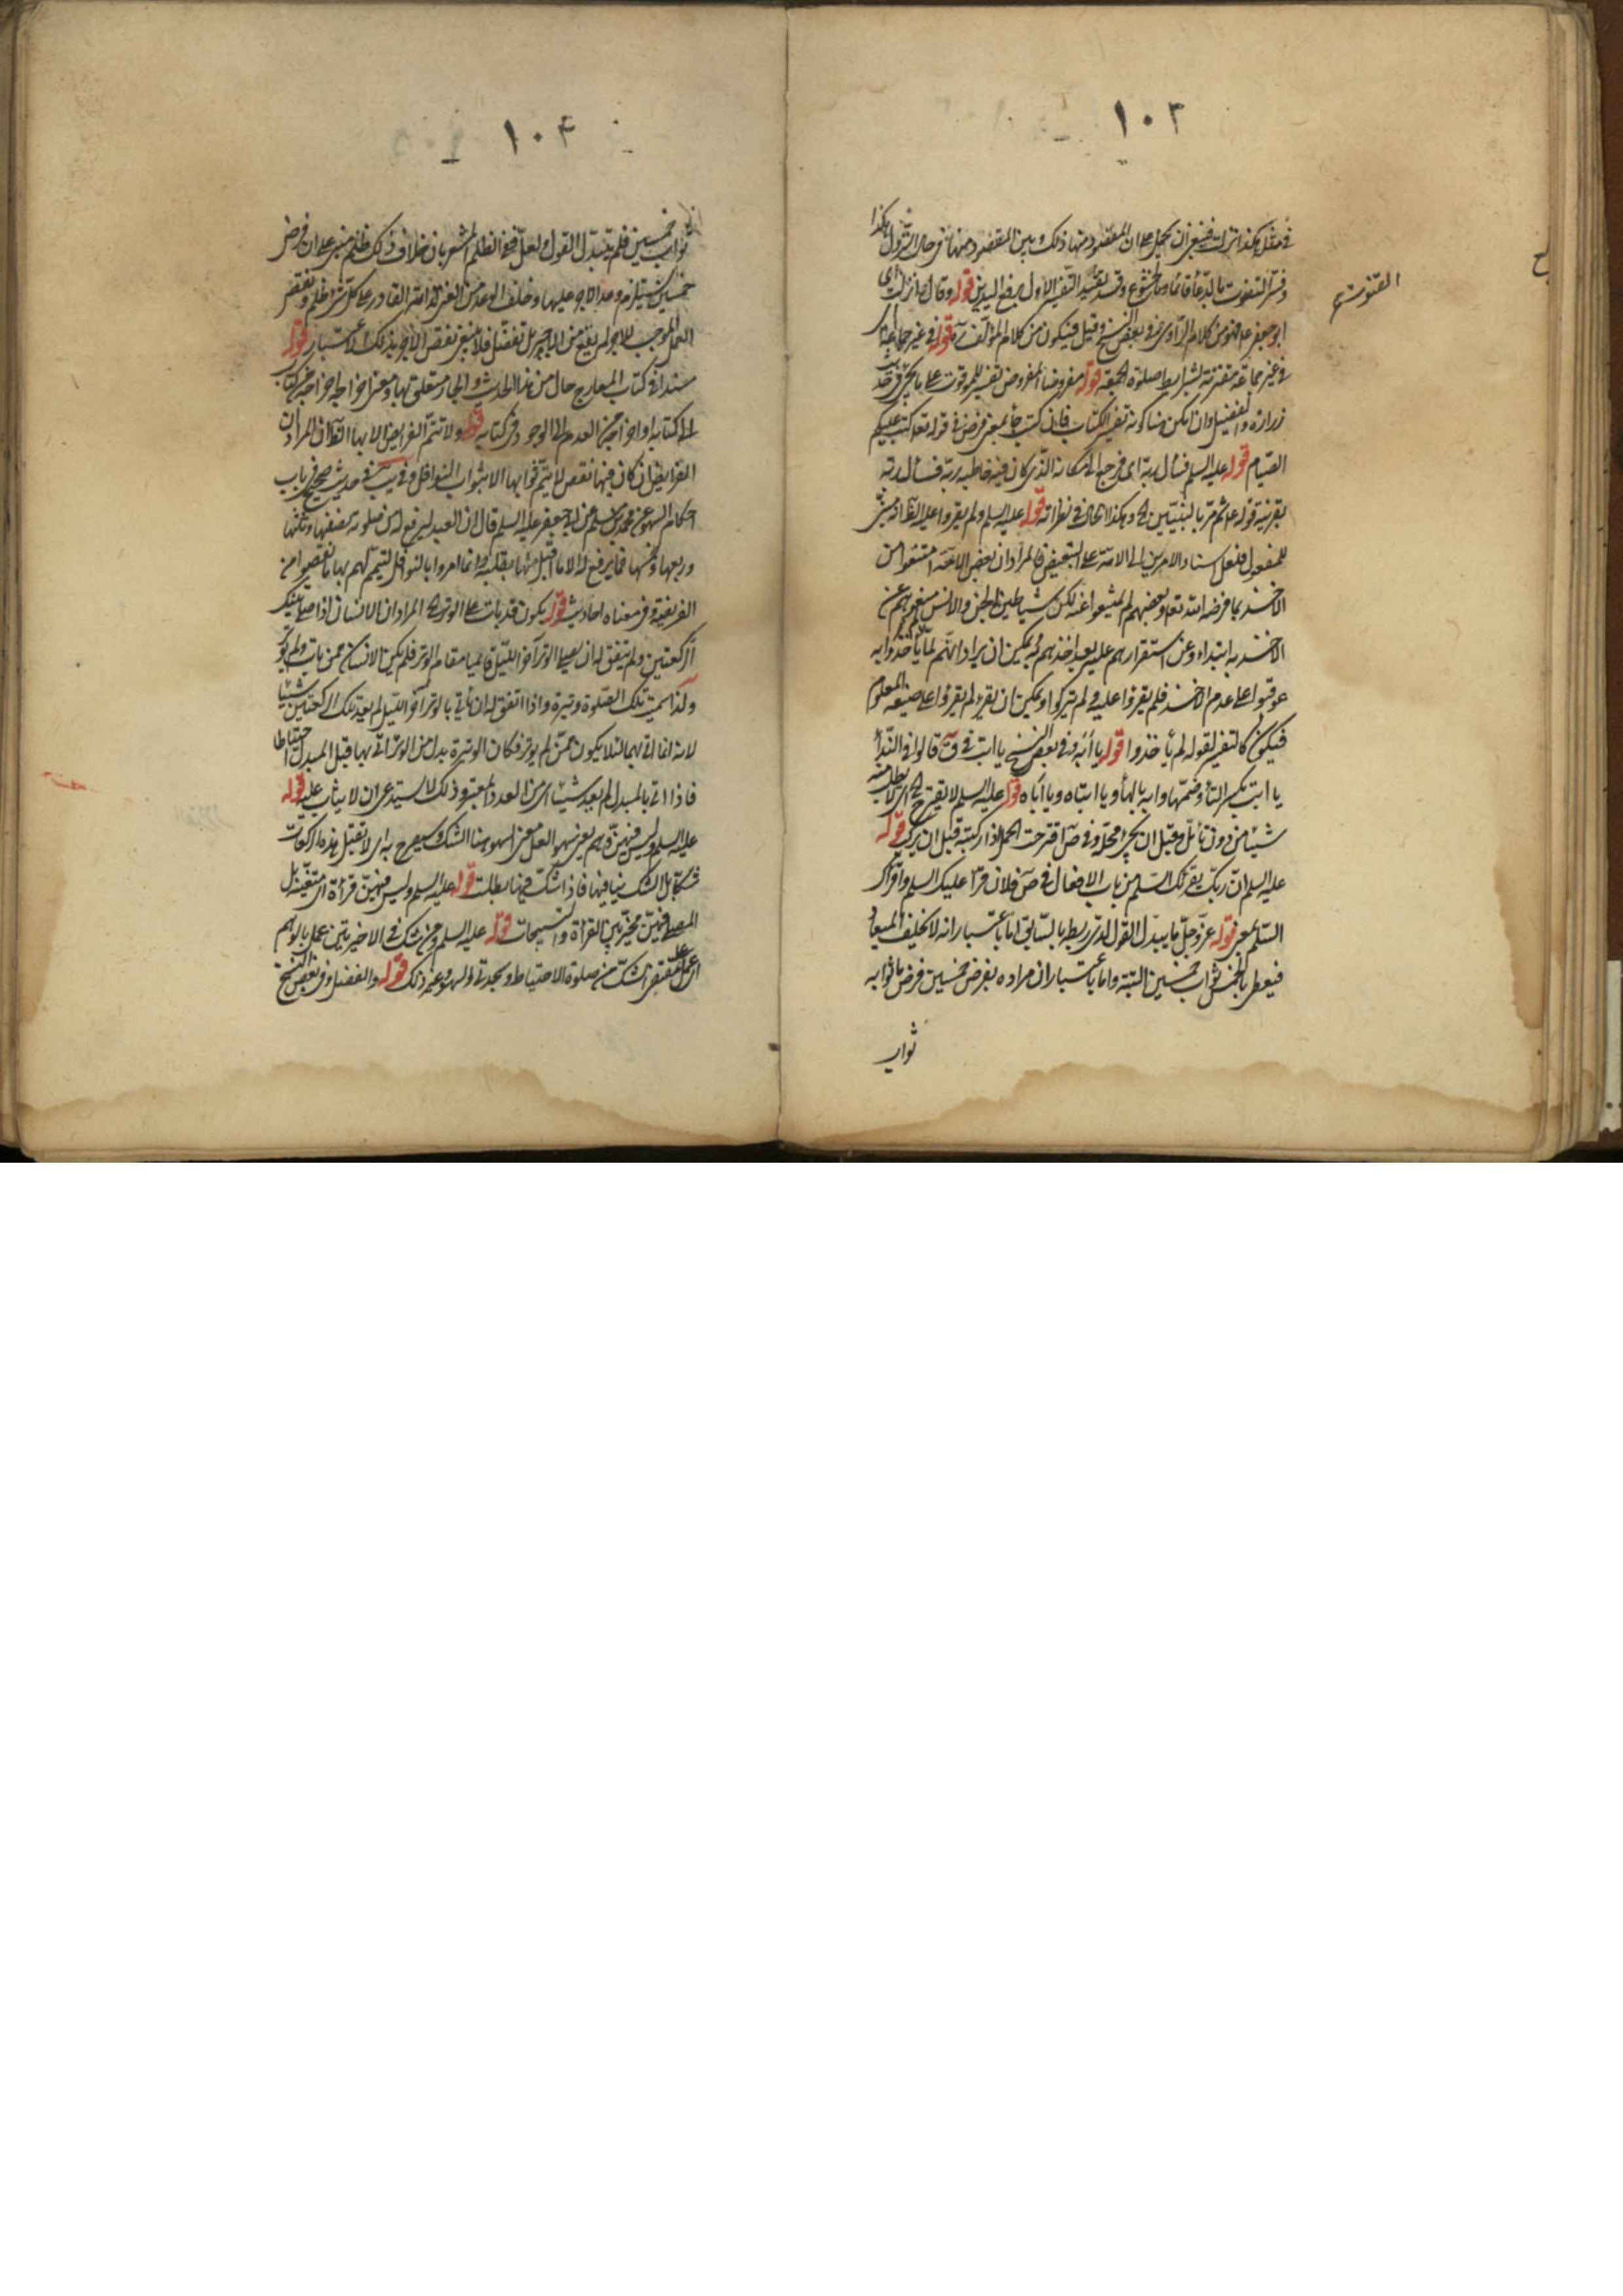 ١٠٣
في مثل هكذا انزلت فينبغي ان يحمل على ان المقصود منها ذلك وبين المقصود منها في حال النزول هكذا
وفسر القنوت بالدعاء قائما وبالخشوع وقد التفسير الاول برفع اليدين قوله وقال انزلت اي
القنوت
ابو جعفر من كلام الراوي وفي بعض النسخ وقيل فيكون من كلام المؤلف قوله في غير جماعة اي
في غير جماعة مقترنة بشرايط صلوة الجمعة قوله مفروضا المفروض تفسير للموقوت على ما
زرارة والفضيل وان امكن كونه تفسير الكتاب فان كتب جاء بمعنى فرض في قوله تعالى كتب عليكم
الصيام قوله عليه السلم فسأل ربه اي فرجع الى مكانه الذي كان فيه خاطبه ربه فسأل ربه
بقرينة قوله ثم مر بالنبيين وهكذا الحال في نظرائه قوله عليه السلم ولم يقروا عليه الظاهر
للمفعول فلعل اسناد الامرين الى الامة على التبعيض فالمراد ان بعض الامة امتنعوا من
الاخذ بما فرضه الله تعالى وبعضهم لم يمتنعوا عنه لكن شياطين الجن والانس منعوهم عن
الاخذ به ابتداء وعن استقرارهم عليه بعد اخذهم به يمكن ان يراد انهم لما لم يأخذوا به
عوقبوا على عدم الاخذ فلم يقروا عليه ولم يتركوا ويمكن ان يقرء لم يقروا على صيغة المعلوم
فيكون كالتفسير لقوله لم يأخذوا قوله يا ابه وفي بعض النسخ يا ابت في ق قالوا في النداء
يا ابت بكسر التاء وضمها ويا ابه بالهاء ويا ابتاه ويا اباه قوله عليه السلم لا يقترح اي لا يطلب منه
شيئا من دون تأمل وقبل ان يجري محله وفي ص اقترحت الجمل اذا ركبته قبل ان يركب قوله
عليه السلم ان ربك يقرئك السلم من باب الافعال في ص فلان قرأ عليك السلم واقرأك
السلم بمعنى قوله عز وجل ما يبدل القول لدي ربط بالسابق اما باعتبار انه لا يخلف الميعاد
فيعطي بالخمس ثواب خمسين البتة واما باعتبار ان مراده بفرض خمسين فرض ما ثوابه
ثواب
١٠٤
ثواب خمسين فلم يتبدل القول ولعل نفي الظلم المشعر بان خلاف ذلك ظلم مبني على ان فرض
خمسين يستلزم وعد الاجر عليها وخلف الوعد من الغني القادر على كل شيء ظلم ونقص
العمل الموجب للاجر لم يقع من الاجير بل تفضل فلا ينبغي نقص الاجر بذلك الاعتبار قوله
مسندا في كتاب المعارج حال من هذا الحديث والجار متعلق بها ومعنى اخراجه اخراجه من كتاب
الى كتابه او اخراجه من العدم الى الوجود في كتابه قوله ولا تتم الفرايض الا بها الظاهر ان المراد ان
الفرايض ان كان فيها نقص لا يتم ثوابها الا بثواب النوافل وفي يب في حديث صحيح في باب
احكام السهو عن محمد بن مسلم عن ابي جعفر عليه السلم قال ان العبد ليرفع له من صلوته نصفها وثلثها
وربعها وخمسها فما يرفع له الا ما اقبل منها بقلبه وانما امروا بالنوافل ليتم لهم بها ما نقصوا من
الفريضة وفي معناه احاديث قوله يكون قد بات على الوتر المراد ان الانسان اذا صلى تينك
الركعتين ولم يتفق له ان يصلي الوتر آخر الليل قامتا مقام الوتر فلم يكن الانسان ممن بات ولم يوتر
ولذا سميت تلك الصلوة وتيرة واذا اتفق له ان يأتي بالوتر آخر الليل لم يعد تلك الركعتين شيئا
لانه انما اتى بهما لئلا يكون ممن لم يوتر فكان الوتيرة بدل من الوتر اتى بها قبل المبدل احتياطا
فاذا اتى بالمبدل لم يعد شيئا من العدد المعتبر وذلك لا يستدعي ان لا يثاب عليه قوله
عليه السلم وليس فيهن وهم يعني سهوا لعل معنى السهو هنا الشك وسيصرح به اي لا تقبل هذه الركعات
شكا بل الشك ينافيها فاذا شك فيها بطلت قوله عليه السلم وليس فيهن قراءة اي متعينة بل
المصلي فيهن مخير بين القراءة والتسبيحات قوله عليه السلم ومن شك في الاخيرتين عمل بالوهم
اي عمل على مقتضى الشك من صلوة الاحتياط وسجدتي السهو وغير ذلك قوله والفضل وفي بعض النسخ